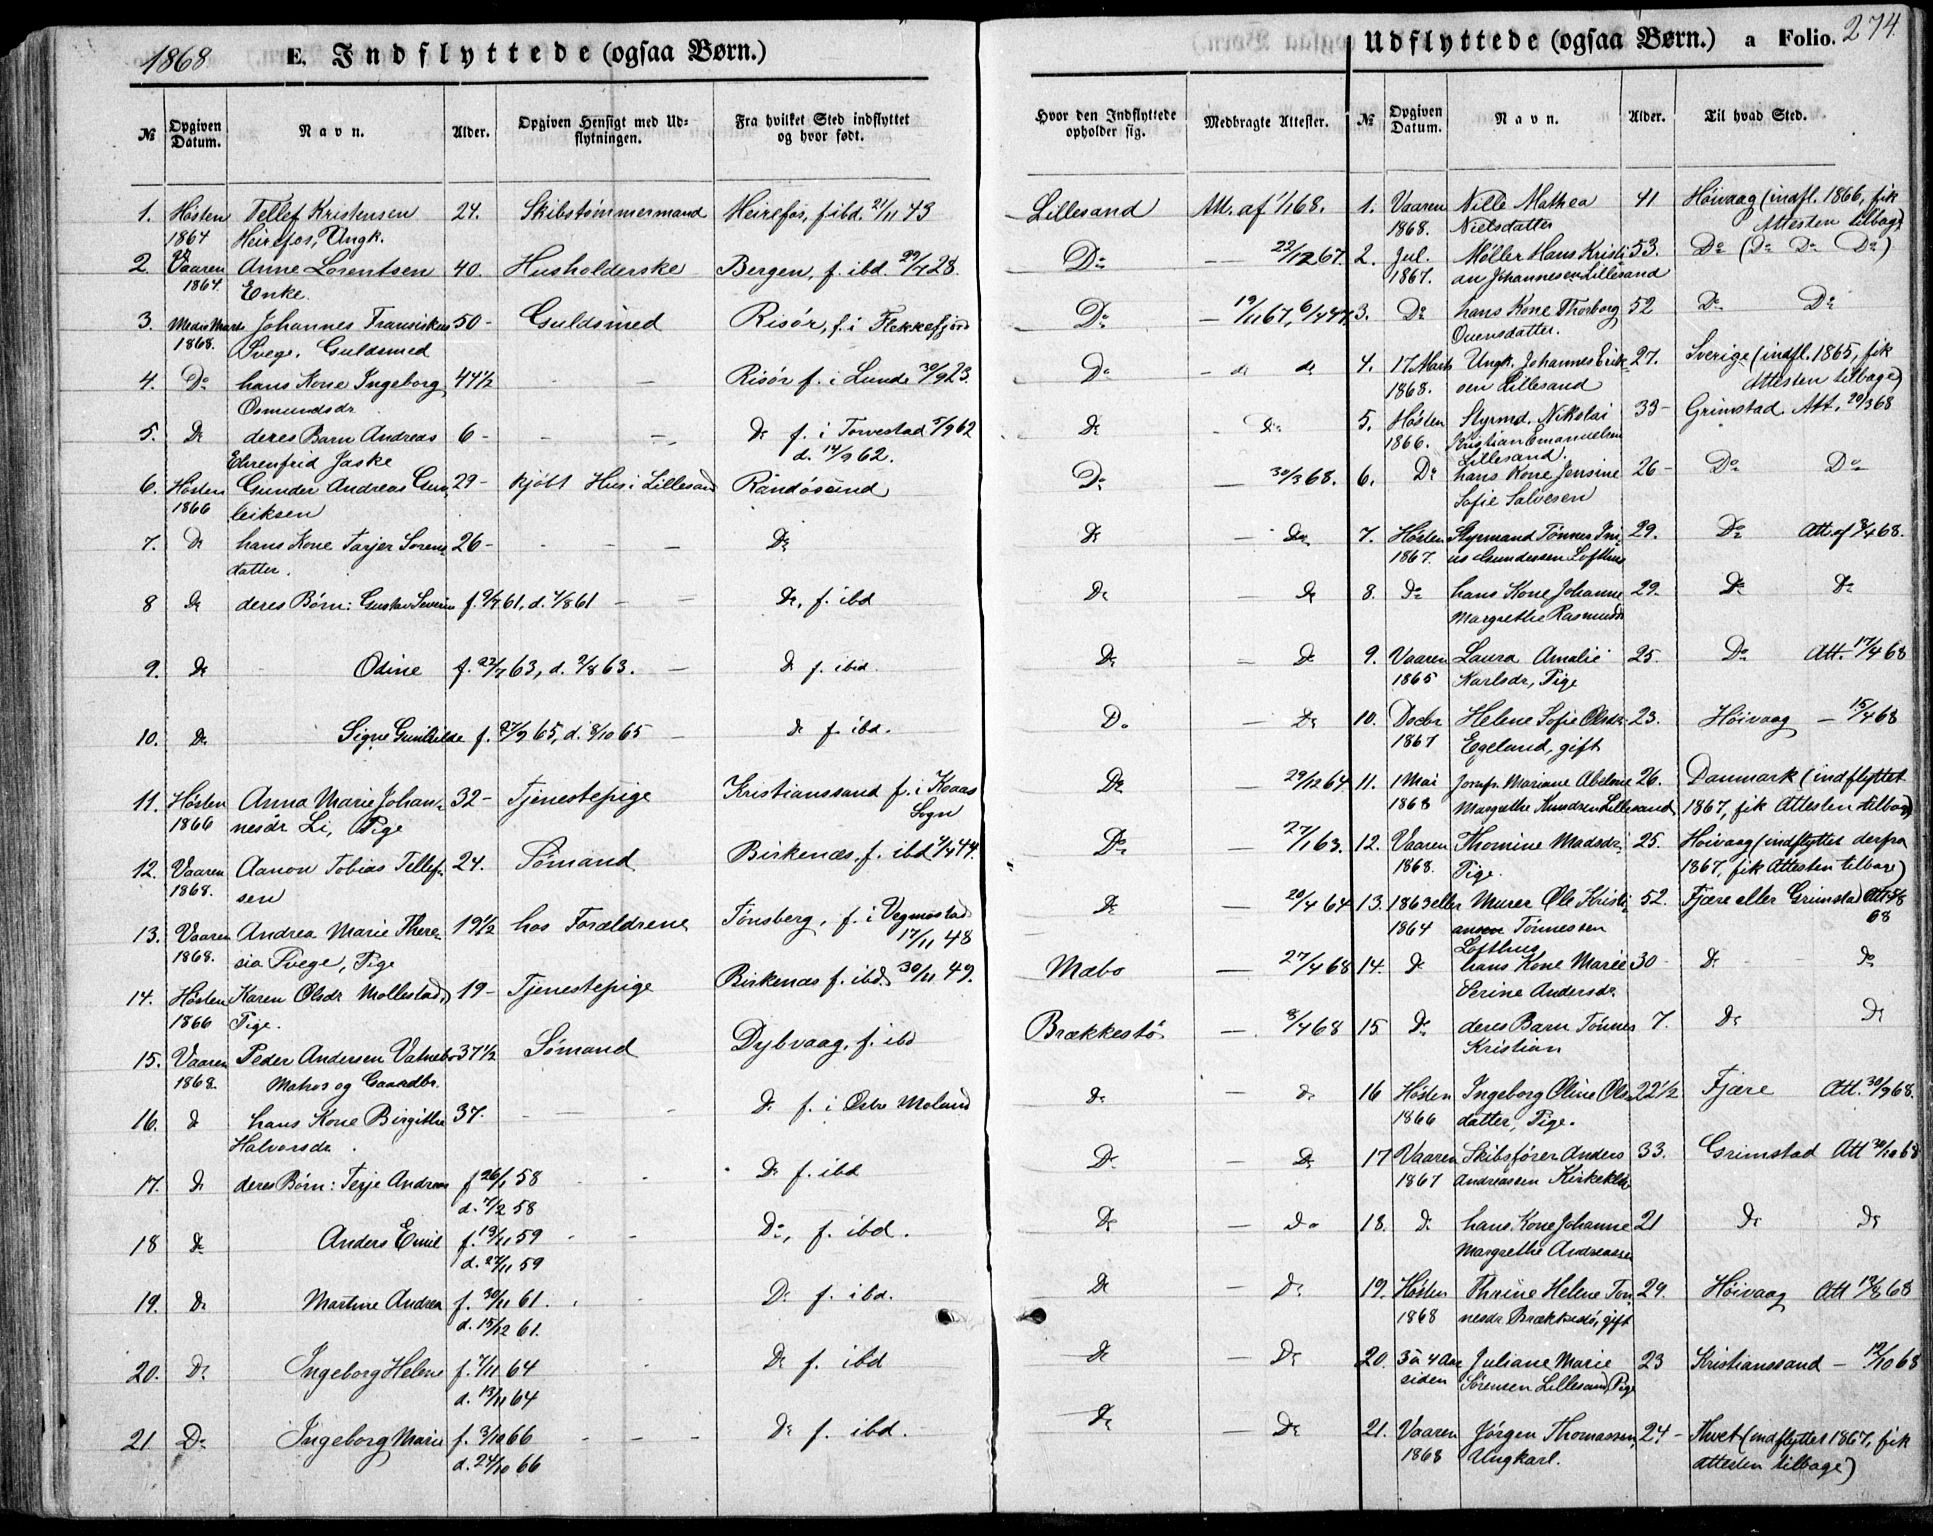 1868
E. Indflyttede (ogsaa Børn.)
Udflyttede (ogsaa Børn.) a Folio. 274
№ Opgiven Datum. Navn. Alder. Opgiven Hensigt med Udflytningen. Fra hvilket Sted indflyttet og hvor født.
Hvor den Indflyttede opholder sig. Medbragte Attester. № Opgiven Datum. Navn. Alder. Til hvad Sted.
1. Høsten Tellef Kristensen 24. Skibstømmermand Heirefos, f ibd. 21/11 43 Lillesand Att. af 1/1 68.
1867 Heirefos, Ungk.
2 Vaaren Anne Lorentsen 40. Husholderske Bergen, f. ibd. 29/7 28. Do — 22/12 67.
1864 Enke.
3. Medio Marts Johannes Fransiskus 50 - Guldsmed Risør, f. i Flekkefjord Do — 19/11 67,
1868. Svege. Guldsmed
4. Do hans Kone Ingeborg 44 1/2 - - Risør f. i Lunde 30/9 23. Do - do do
Osmundsdr
5. Do deres Barn Andreas 6 - - - Do f. i Torvestad 5/9 62 Do - Do
Ehrenfrid Jaske d. 14/9 62.
6. Høsten Gunder Andreas Gun- 29 - kjøbt Hus i Lillesand Randøsund Do — 30/3 68.
1866 leiksen
7. Do hans Kone Tarjer Sørens- 26 - - - - Do Do — Do
datter.
8 Do deres Børn: Gustav Severin f. 9/7 61, d. 4/8 61 - - Do, f. ibd Do — Do
9. Do Odine f. 22/7 63, d. 9/8 63. - Do f. ibd. Do — Do
10. Do Signe Gunhilde f. 27/9 65, d. 8/10 65 - Do f. ibd. Do — Do
11. Høsten Anna Marie Johan- 32 - Tjenestepige Kristianssand f. i Do 29/12 64
1866 nesdr Li, Pige Sogn
12. Vaaren Aanon Tobias Tellef- 24. Sømand Birkenæs, f. ibd 44. Do — 27/1 63.
1868. sen
13. Vaaren Andrea Marie There- 19 1/2 hos Forældrene Tønsberg, f. i Vegmostad Do — 20/4 64
1868. sia Svege, Pige 17/11 48
14. Høsten Karen Olsdr Mollestad, 19 - Tjenestepige Birkenæs f. ibd. 30/11 49. Mæbo — 27/4 68
1866 Pige.
15. Vaaren Peder Andersen Vatnebo 37 1/2 Sømand Dybvaag, f. ibd Brækkestø — 8/4 68
1868. Matros og Gaardbr.
16. Do hans Kone Birgithe 37. - - - Do f. i Østre Moland Do - Do
Halvorsdr.
17. Do deres Børn: Terje Andreas f 26/1 58 - - Do f. ibd Do — Do
d. 7/2 58
18 Do Anders Emil f. 19/11 59 - - Do, f. ibd. Do — Do
d. 27/11 59
19. Do Martine Andrea f. 30/11 61. Do f. ibd. Do — Do
d. 15/12 61.
20. Do Ingeborg Helene f. 7/11 64 - Do f. ibd Do — Do
d. 13/11 64
21 Do Ingeborg Marie f. 3/10 66 - - - Do f. ibd. Do — Do
d. 24/10 66
1. Vaaren Nille Mathea 41 Høivaag (indfl. 1866, fik
1868. Nielsdatter Attesten tilbage)
2. Jul. Møller Hans Kristi- 53. Do (Do Do Do)
1867. an Johannesen Lillesand
3. Do hans Kone Thorborg 52 Do Do
Ouensdatter.
4. 17 Marts Ungk. Johannes Erik- 27. Sverige (indfl. 1865, fik
1868. sen Lillesand Attesten tilbage)
5. Høsten Styrmd. Nikolai 33 - Grimstad. Att. 20/3 68
1866. Kristian Emanuelsen
Lillesand.
6. Do hans Kone Jensine 26 - Do Do
Sofie Salvesen
7. Høsten Styrmand Tønnes Jni- 29. Do Att. af 8/4 68.
1867. us Gundersen Lofthus
8. Do hans Kone Johanne 29. Do Do
Margrethe Rasmusdr
9. Vaaren Laura Amalie 25. Do Att. 17/4 68
1865 Karlsdr, Pige
10. Decbr Helene Sofie Olsdr 23. Høivaag — 15/4 68
1867 Egeland, gift
11. 1 Mai Jomfr. Mariane Abelone 26. Danmark (indflyttet
1868 Margrethe Knudsen Lillesand 1867, fik Attesten tilbage)
12. Vaaren Thomine Madsdr 25. Høivaag (indflyttet derfra
1868. Pige. 1867, fik Attesten tilbage)
13. 1863 eller Murer Ole Kristi- 52. Fjære eller Grimstad
1864 ansen Tønnessen 68
Lofthus
14. Do hans Kone Marie 30 - Do - Do
Serine Andersdr.
15 Do deres Barn Tønnes 7. Do Do
Kristian
16 Høsten Ingeborg Oline Ols- 22 1/2 Fjære Att. 30/9 68.
1866 datter, Pige.
17 Vaaren Skibsfører Anders 33. Grimstad Att 30/10 68
1867 Andreassen
18. Do hans Kone Johanne 21 Do Do
Margrethe Andreassen
19. Høsten Thrine Helene Tøn- 29. Høivaag Att 19/8 68
1868 nesdr Brækkestø, gift
20. 3 à 4 Aar Juliane Marie 23 Kristianssand — 12/10 68
siden Sørensen Lillesand, Pige
21. Vaaren Jørgen Thomassen, 24 - Thvet (indflyttet 1867, fik
1868 Ungkarl. Attesten tilbage)